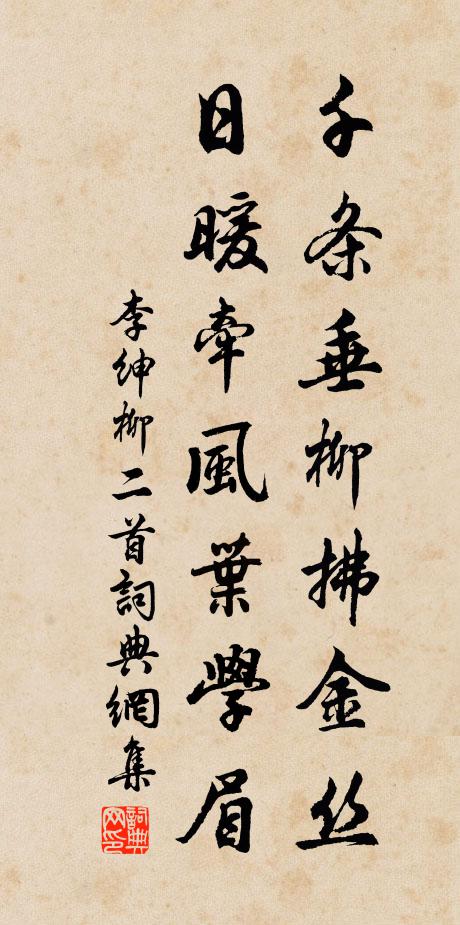 千条垂柳拂金丝
日暖牵風葉學眉
李绅柳二首詞典網集
詞典网印